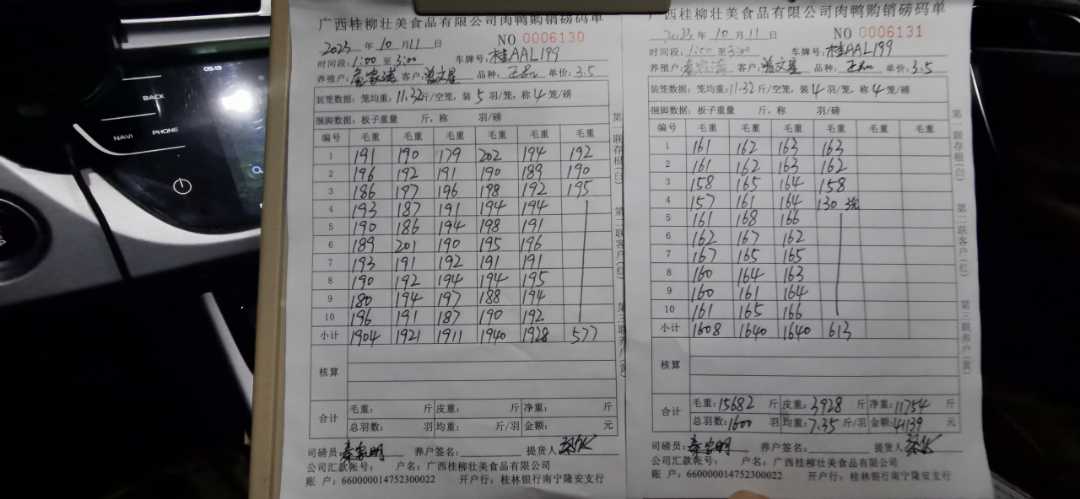 05:13
BACK
NAVI
PHONE
广西桂柳壮美食品有限公司肉鸭购销磅码单
NO 0006130
2023 年 10 月 11 日
时间段: 1:00 至 3:00 车牌号: 桂AAL199
养殖户: 客户: 品种: 单价: 3.5
装笼数据: 笼均重: 11.32 斤/空笼, 装 5 羽/笼, 称 4 笼/磅
捆脚数据: 板子重量 斤, 称 羽/磅
编号 毛重 毛重 毛重 毛重 毛重 毛重
1 191 190 179 202 194 192
2 196 192 191 190 189 190
3 186 197 196 198 192 195
4 193 187 191 194 194
5 190 186 194 198 191
6 189 201 190 195 196
7 193 191 192 191 191
8 190 192 194 194 195
9 180 194 197 188 194
10 196 191 187 190 192
小计 1904 1921 1911 1940 1928 577
核算
合计 毛重: 斤 皮重: 斤 净重: 斤
总羽数: 羽 均重: 斤/羽 金额: 元
司磅员: 养户签名: 提货人:
公司汇款帐号: 户名: 广西桂柳壮美食品有限公司
账 户: 660000014752300022 开户行: 桂林银行南宁隆安支行
第一联存根(白) 第二联客户(红) 第三联养户(黄)
广西桂柳壮美食品有限公司肉鸭购销磅码单
NO 0006131
2023 年 10 月 11 日
时间段: 1:00 至 3:00 车牌号: 桂AAL199
养殖户: 客户: 品种: 单价: 3.5
装笼数据: 笼均重: 11.32 斤/空笼, 装 4 羽/笼, 称 4 笼/磅
捆脚数据: 板子重量 斤, 称 羽/磅
编号 毛重 毛重 毛重 毛重 毛重 毛重
1 161 162 163 163
2 161 162 163 162
3 158 165 164 158
4 157 161 164 130
5 161 168 166
6 162 167 162
7 167 165 165
8 160 164 163
9 160 161 164
10 161 165 166
小计 1608 1640 1640 613
核算
合计 毛重: 15682 斤 皮重: 3928 斤 净重: 11754 斤
总羽数: 1600 羽 均重: 7.35 斤/羽 金额: 41139 元
司磅员: 养户签名: 提货人:
公司汇款帐号: 户名: 广西桂柳壮美食品有限公司
账 户: 660000014752300022 开户行: 桂林银行南宁隆安支行
第一联存根(白) 第二联客户(红) 第三联养户(黄)